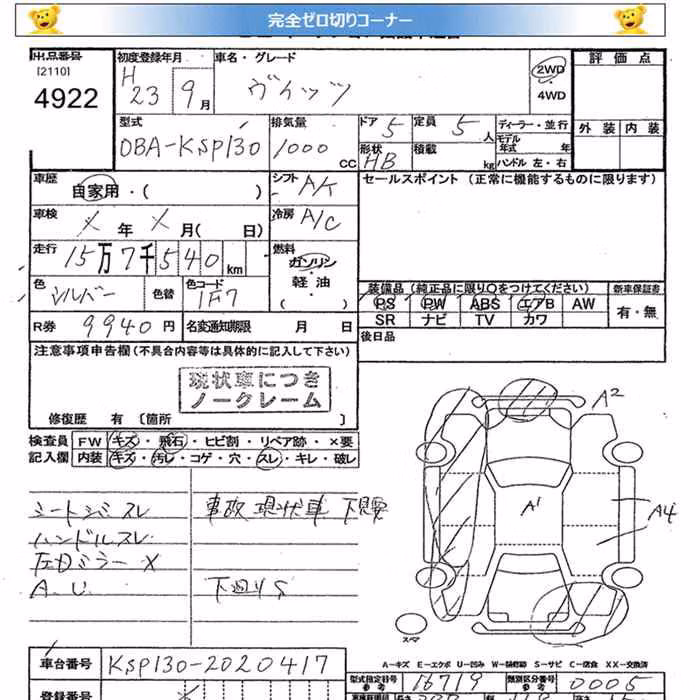 完全ゼロ切りコーナー
出品番号
[2110]
4922
初度登録年月
H 23 9月
車名・グレード
ヴィッツ
2WD
・
4WD
評価点
外装 内装
型式
DBA-KSP130
排気量
1000 CC
ドア 5
定員 5 人
形状 HB
積載 kg
ディーラー・並行
モデル年式 年
ハンドル 左・右
車歴
自家用・( )
シフト A/K
セールスポイント (正常に機能するものに限ります)
車検
X 年 X 月( 日)
冷房 A/C
走行
15万7千540km
燃料
ガソリン
・
軽油
( )
色
シルバー
色替
色コード
1F7
装備品 (純正品に限り○をつけてください)
新車保証書
PS PW ABS エアB AW
有・無
SR ナビ TV カワ
R券 9940円
名変通知期限 月 日
後日品
注意事項申告欄 (不具合内容等は具体的に記入して下さい)
現状車につき
ノークレーム
修復歴 有 〔箇所 〕
検査員
記入欄
FW キズ・飛石・ヒビ割・リペア跡・×要
内装 キズ・汚レ・コゲ・穴・スレ・キレ・破レ
シートシバスレ
事故現状車 下見要
ハンドルスレ
左Dミラー X
A.U
下廻りS
A2
A1
A4
スペア
A-キズ E-エクボ U-凹み W-補修跡 S-サビ C-腐食 XX-交換済
車台番号
KSP130-2020417
型式指定番号
参考
16719
類別区分番号
参考
0005
登録番号